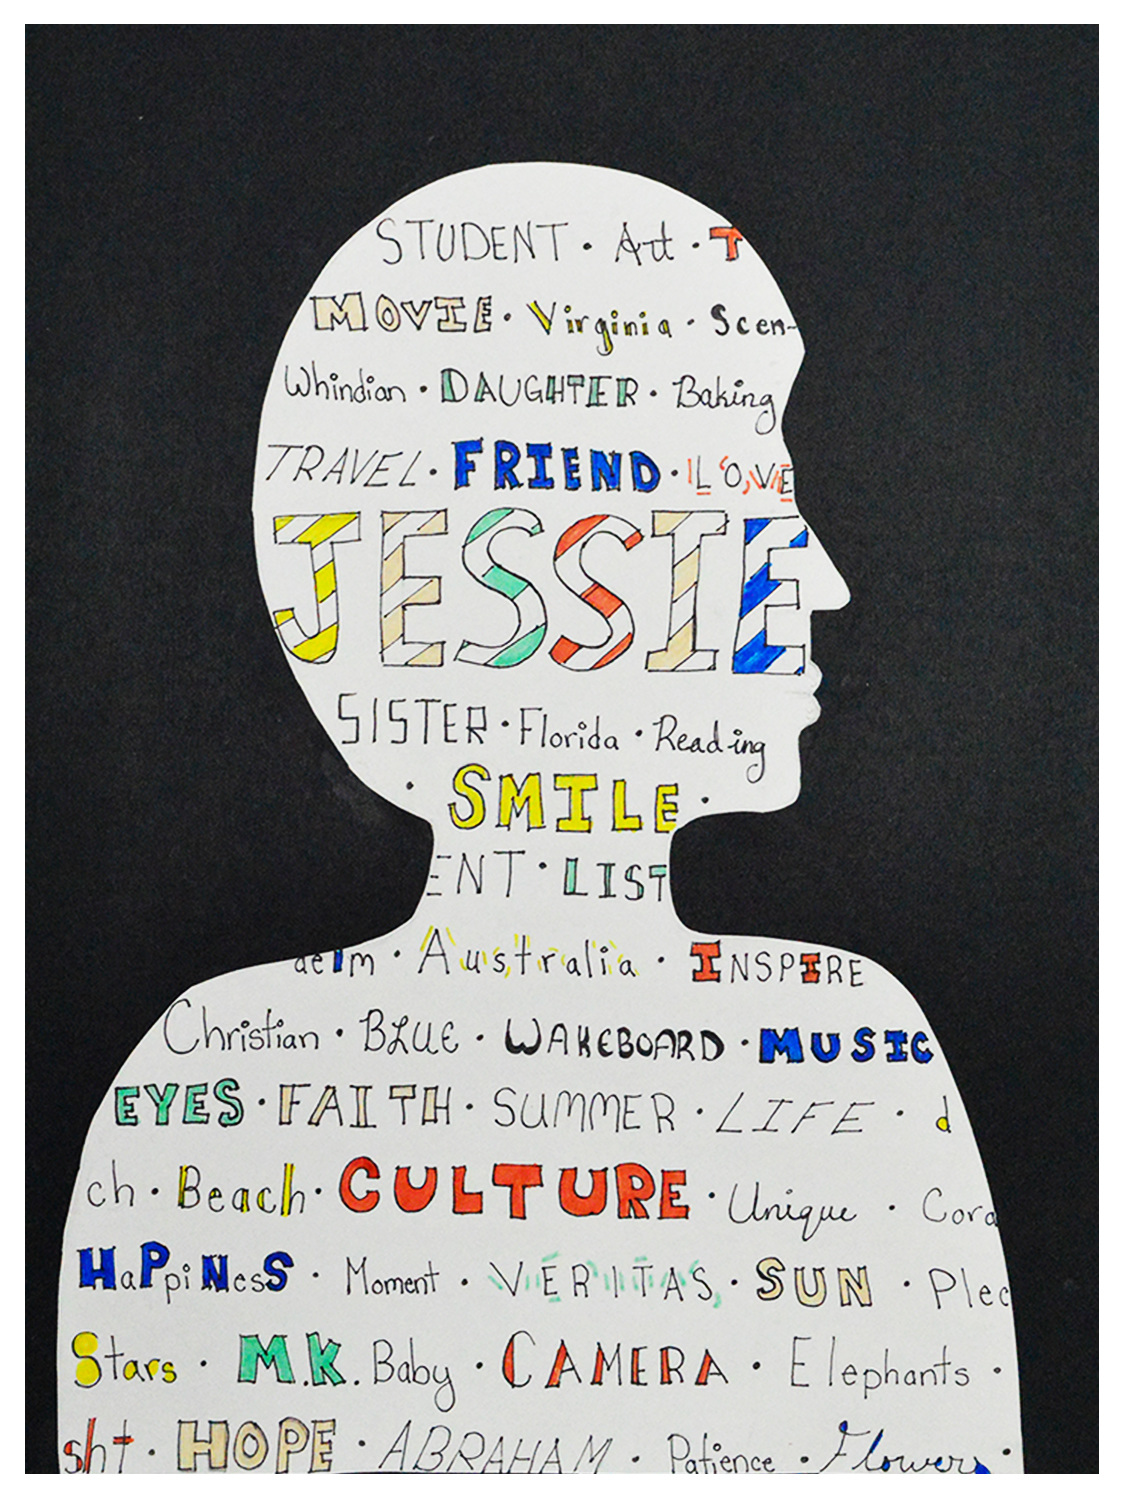 STUDENT · Art · T
MOVIE · Virginia · Scen-
Whindian · DAUGHTER · Baking
TRAVEL · FRIEND · LOVE
JESSIE
SISTER · Florida · Reading
· SMILE ·
ENT · LIST
aeim · Australia · INSPIRE
Christian · BLUE · WAKEBOARD · MUSIC
EYES · FAITH · SUMMER · LIFE · d
ch · Beach · CULTURE · Unique · Cora
HaPpiNesS · Moment · VERITAS · SUN · Plec
Stars · M.K. Baby · CAMERA · Elephants ·
sht · HOPE · ABRAHAM · Patience · Flowers ·